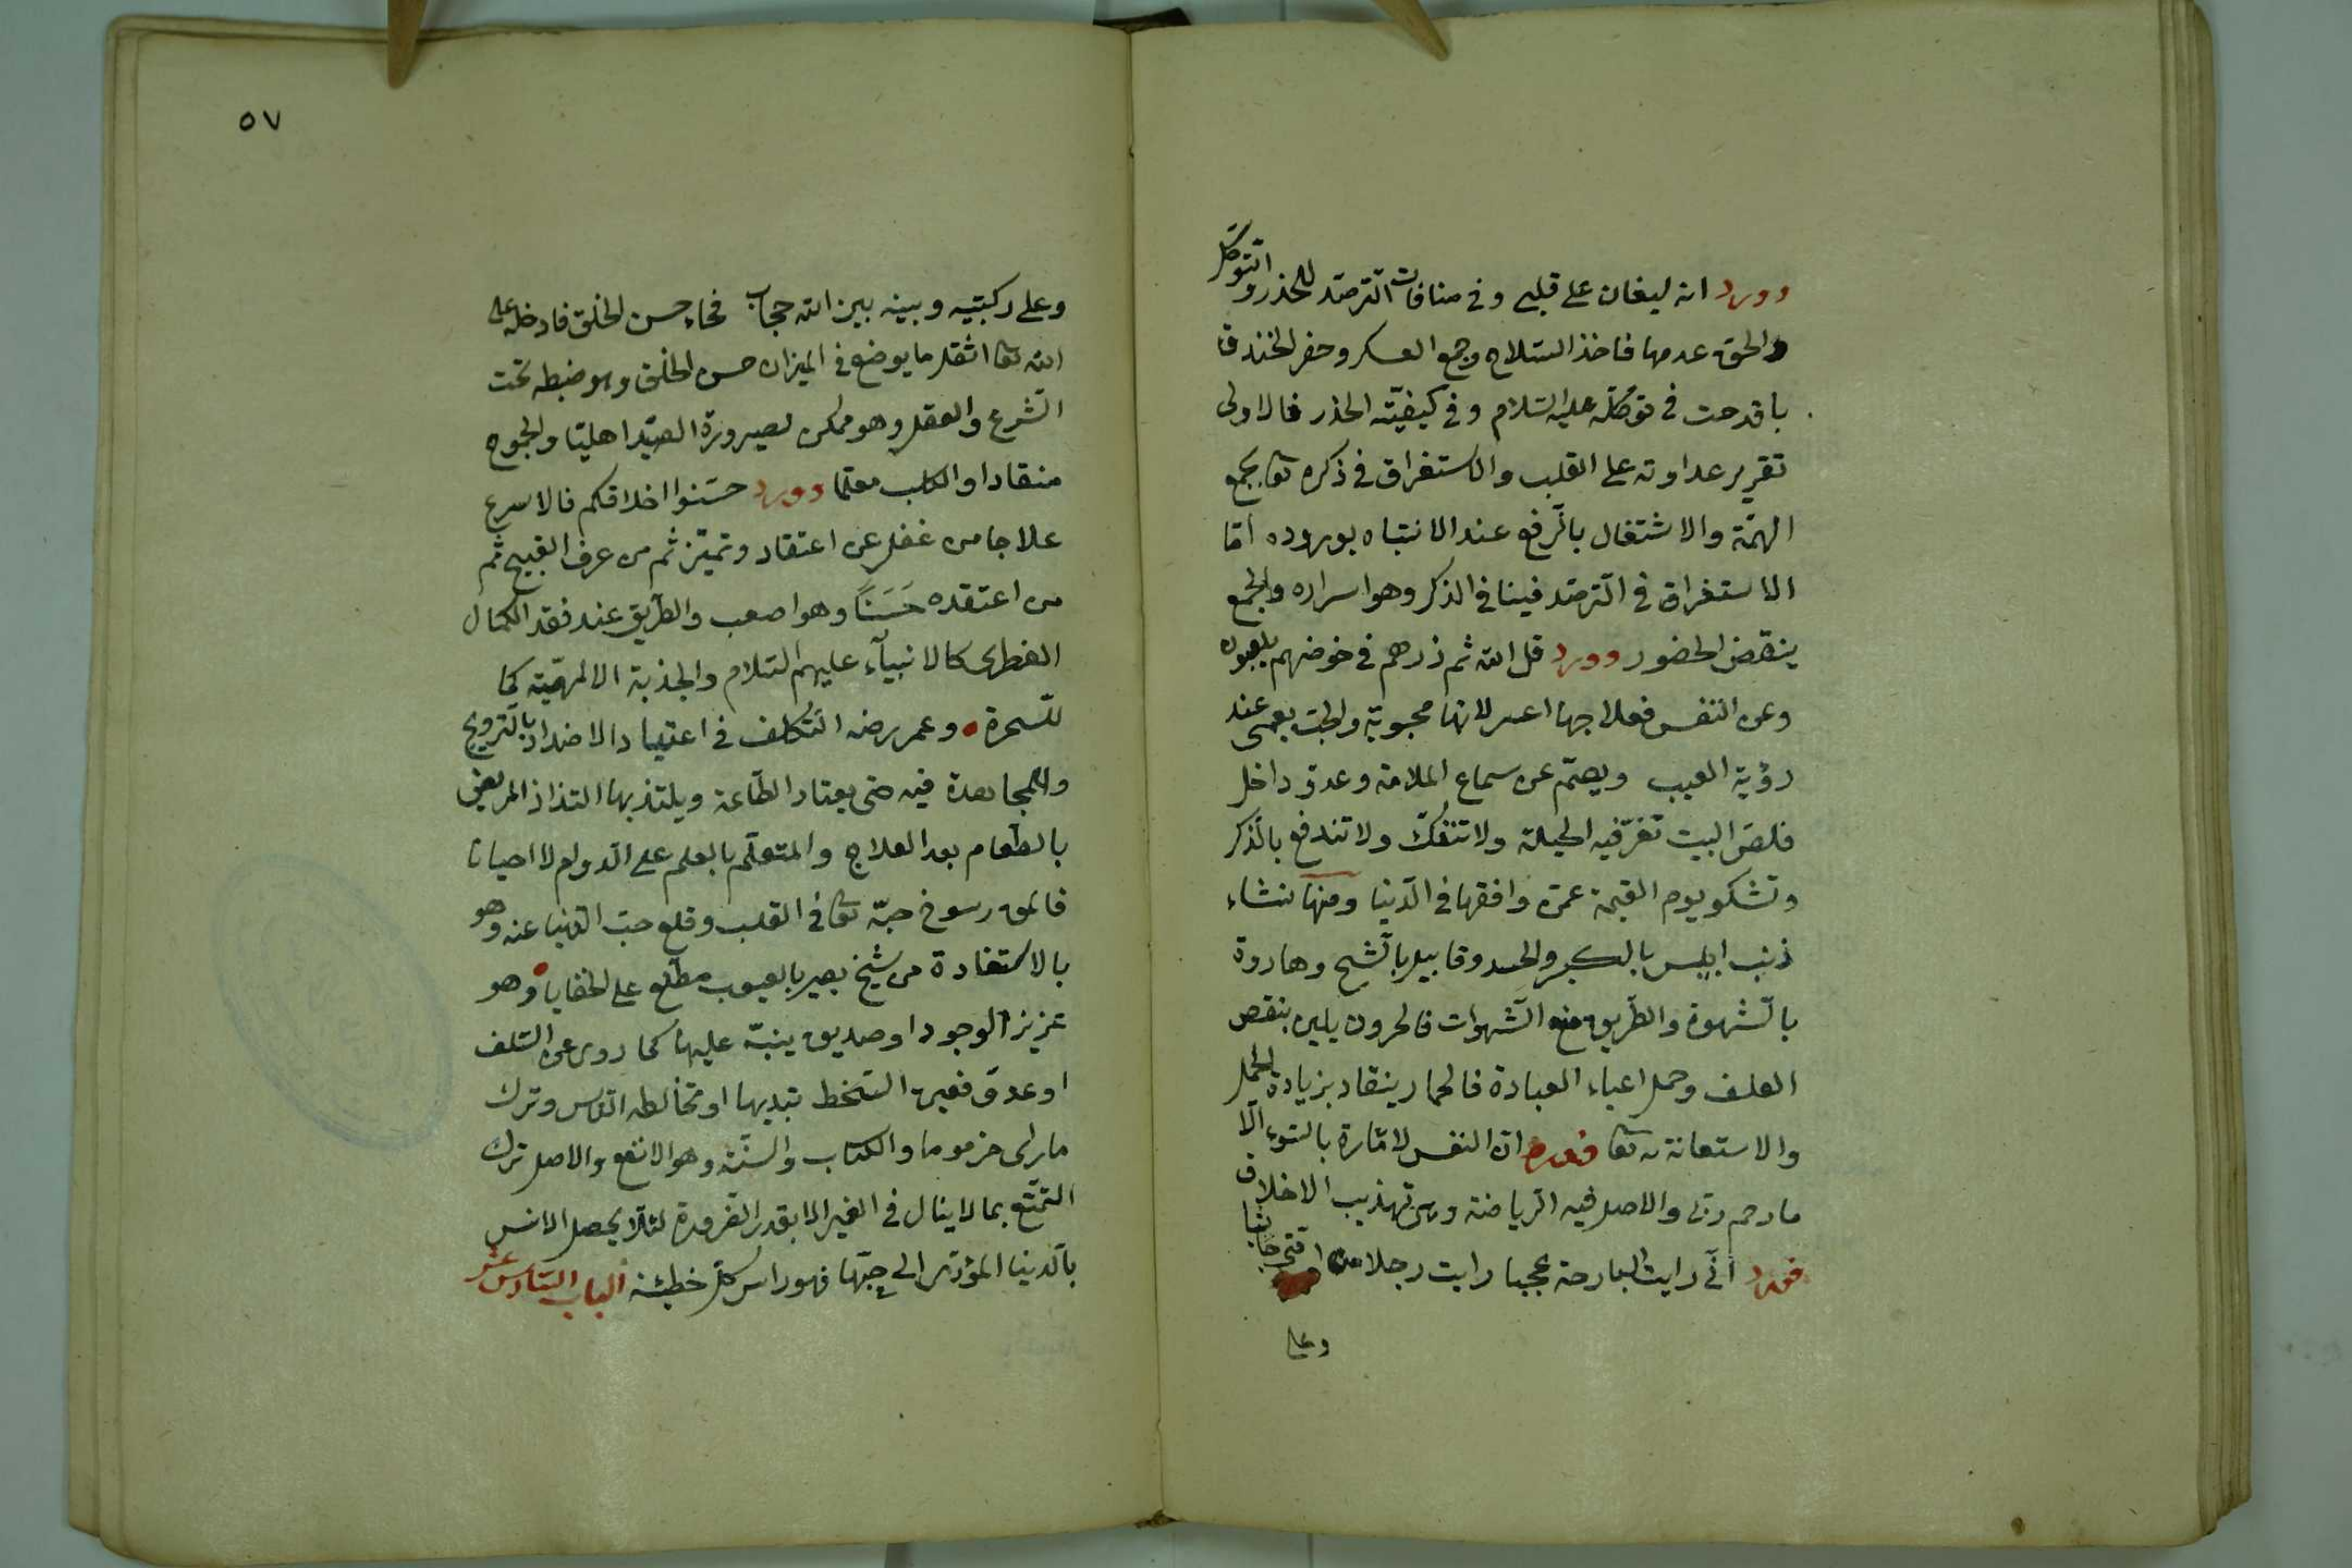 وورد انه ليغان على قلبي وفي منافات الترصّد للحذر والتوكّل
والحق عدمها فاخذ السّلاح وجمع العسكر وحفر الخندق ما
باقدحت في توكّله عليه السّلام وفي كيفيّته الحذر فالاولى
تقرير عداوته على القلب والاستغراق في ذكره تعا بجمع
الهمّة والاشتغال بالرّفع عند الانتباه بوروده امّا
الاستغراق في الترصّد فينافي الذكر وهو اسراره والجمع
ينقض الحضور وورد قل الله ثم ذرهم في خوضهم يلعبون
وعن النفس فعلاجها اعسر لانها محبوبة والحبّ يعمى عند
رؤية العيب ويصمّ عن سماع الملامة وعدوّ داخل
فلصّ البيت تعزّ فيه الحيلة ولا تنفكّ ولا تندفع بالذّكر
وتشكو يوم القيمة عمّن وافقها في الدّنيا ومنها نشاء
ذنب ابليس بالكبر والحسد وقابيل بالشّح وهاروة
بالشّهوة والطّريق منع الشّهوات فالحرون يلين بنقص
العلف وحمل اعباء العبادة فالحمار ينقاد بزيادة الحمل
والاستعانة به تعا فورد انّ النفس لامّارة بالسّوء الّا
ما رحم ربّى والاصل فيه الرّياضة وهى تهذيب الاخلاق
فورد انّى رايت البارحة عجبا رايت رجلا من امّتى جاثيا
وعلى
٥٧
وعلى ركبتيه وبينه بين الله حجاب فجاء حسن الخلق فادخله على
الله تعا اثقل ما يوضع في الميزان حسن الخلق وهو ضبطه تحت
الشّرع والعقل وهو ممكن لصيرورة الصيّد اهليّا والجموح
منقادا والكلب معلّما وورد حسّنوا اخلاقكم فالاسرع
علاجا من غفل عن اعتقاد وتميّز ثم من عرف القبيح ثم
من اعتقده حَسَنًا وهو اصعب والطّريق عند فقد الكمال
الفطرى كالانبيآء عليهم السّلام والجذبة الالهيّة كما
للسّحرة وعمر رضه التّكلف في اعتياد الاضداد بالتّرويح
والمجاهدة فيه حتى يعتاد الطّاعة ويلتذ بها التذاذ المريض
بالطّعام بعد العلاج والمتعلّم بالعلم على الدّوام لا احيانا
فالحق رسوخ حبّه تعا في القلب وقلع حبّ الدّنيا عنه وهو
بالاستفادة من شيخ بصير بالعيوب مطّلع على الخفايا وهو
عزيز الوجود او صديق ينبّه عليها كما روى عن السّلف
او عدوّ فعين السّخط تبديها او مخالطه النّاس وترك
ما راى مزموما والكتاب والسنّة وهو الانفع والاصل ترك
التمتّع بما لا ينال في القبر الا بقدر الضّرورة لئلّا يحصل الانس
بالدّنيا المؤدّى الى حبّها فهو راس كلّ خطيئة الباب السّادس عشر